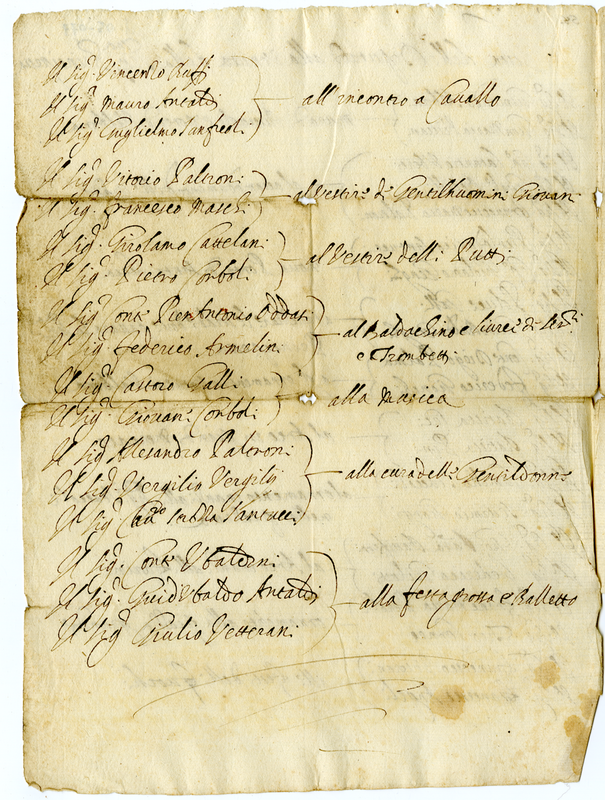 Il Sig.r Vincenzo Ruff.i
Il Sig.r Mauro Antaldi
all'incontro a Cavallo
Il Sig.r Guglielmo
Il Sig.r Vitorio Paltroni
Il Sig.r Francesco Maschi
al Vestire di Gentilhuomini Giovani
Il Sig.r Girolamo Cattelani
Il Sig.r Pietro Corboli
al Vestire delli Putti
Il Sig.r Conte Pier Antonio Oddati
Il Sig.r Federico Armelini
al Baldachino e livree di
e Trombetti
Il Sig.r Castoro Galli
Il Sig.r Giovan Corboli
alla Musica
Il Sig.r Alesandro Paltroni
Il Sig.r Vergilio Vergilij
Il Sig.r Cav.re Santucci
alla cura delle Gentildonne
Il Sig.r Conte Ubaldini
Il Sig.r Guid'Ubaldo Antaldi
Il Sig.r Giulio Vetterani
alla festa grossa e Balletto